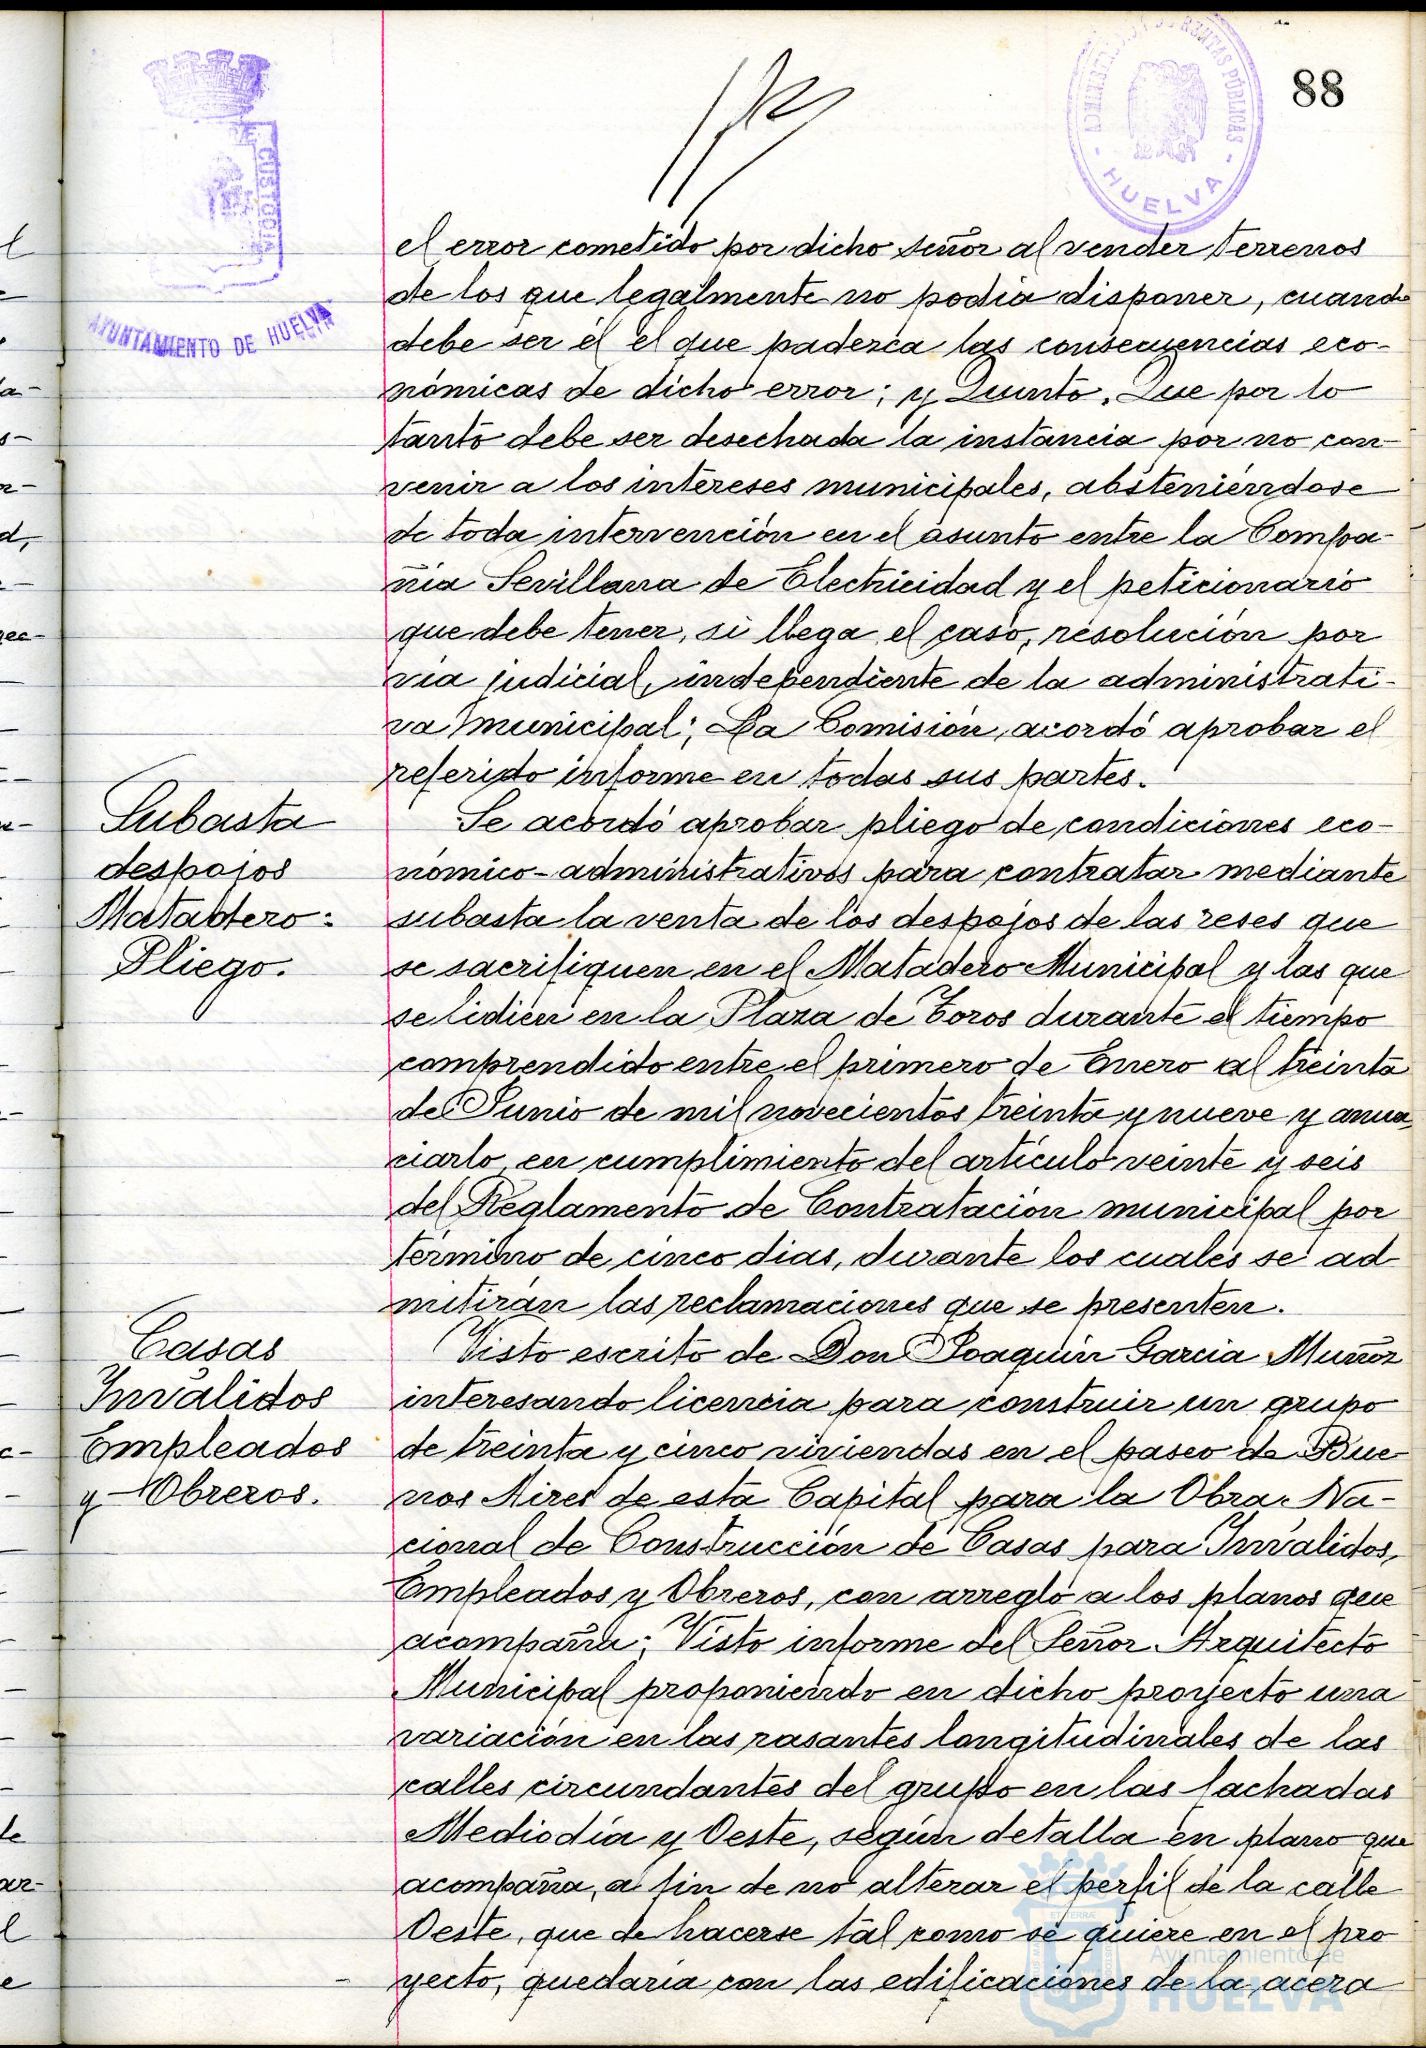 88
ADMINISTRACIÓN DE RENTAS PÚBLICAS
- HUELVA -
CUSTODIA
AYUNTAMIENTO DE HUELVA
el error cometido por dicho señor al vender terrenos
de los que legalmente no podia disponer, cuando
debe ser él el que padezca las consecuencias eco-
nómicas de dicho error; y Quinto. Que por lo
tanto debe ser desechada la instancia por no con-
venir a los intereses municipales, absteniéndose
de toda intervención en el asunto entre la Compa-
ñia Sevillana de Electricidad y el peticionario
que debe tener, si llega el caso, resolución por
via judicial, independiente de la administrati-
va municipal; La Comisión, acordó aprobar el
referido informe en todas sus partes.
Subasta
despojos
Matadero:
Pliego.
Se acordó aprobar pliego de condiciones eco-
nómico-administrativos para contratar mediante
subasta la venta de los despojos de las reses que
se sacrifiquen en el Matadero Municipal y las que
se lidien en la Plaza de Toros durante el tiempo
comprendido entre el primero de Enero al treinta
de Junio de mil novecientos treinta y nueve y anun
ciarlo en cumplimiento del artículo veinte y seis
del Reglamento de Contratación municipal por
término de cinco dias, durante los cuales se ad
mitirán las reclamaciones que se presenten.
Casas
Inválidos
Empleados
y Obreros.
Visto escrito de Don Joaquin Garcia Muñoz
interesando licencia para construir un grupo
de treinta y cinco viviendas en el paseo de Bue
nos Aires de esta Capital para la Obra Na-
cional de Construcción de Casas para Inválidos,
Empleados y Obreros, con arreglo a los planos que
acompaña; Visto informe del Señor Arquitecto
Municipal proponiendo en dicho proyecto una
variación en las rasantes longitudinales de las
calles circundantes del grupo en las fachadas
Mediodía y Oeste, según detalla en plano que
acompaña, a fin de no alterar el perfil de la calle
Oeste, que de hacerse tal como se quiere en el pro
yecto, quedaria con las edificaciones de la acera
Ayuntamiento de
HUELVA